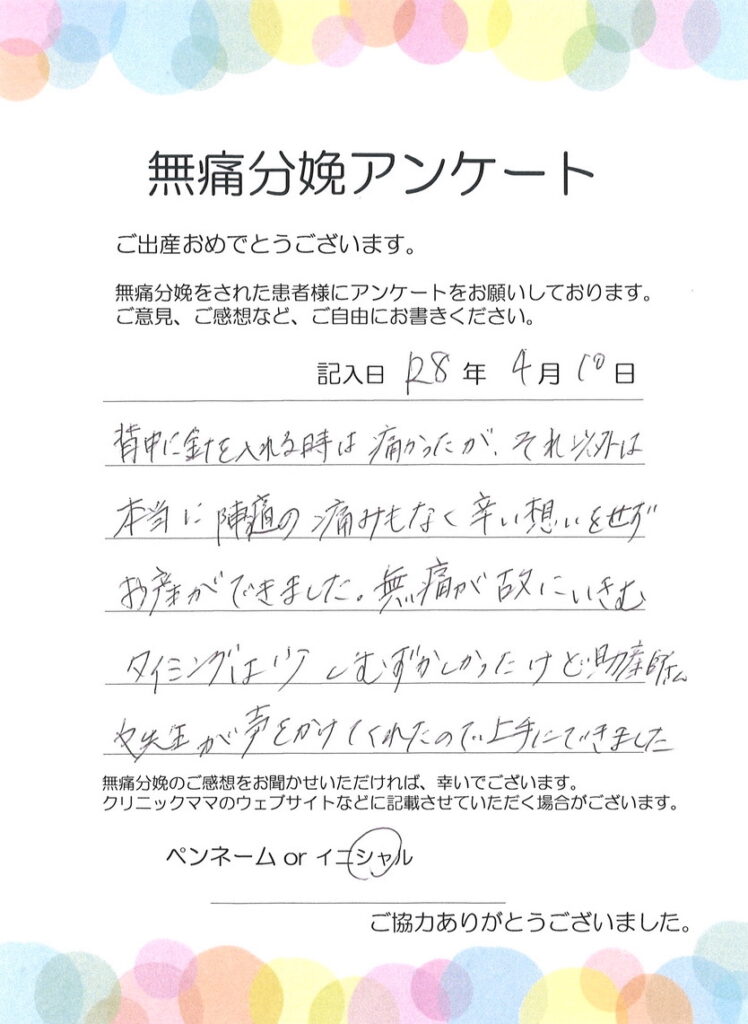 無痛分娩アンケート
ご出産おめでとうございます。
無痛分娩をされた患者様にアンケートをお願いしております。
ご意見、ご感想など、ご自由にお書きください。
記入日 R8 年 4 月 10 日
背中に針を入れる時は痛かったが、それ以外は
本当に陣痛の痛みもなく辛い想いをせず
お産ができました。無痛が故にいきむ
タイミングは少しむずかしかったけど助産師さん
や先生が声をかけてくれたので上手にできました
無痛分娩のご感想をお聞かせいただければ、幸いでございます。
クリニックママのウェブサイトなどに記載させていただく場合がございます。
ペンネーム or イニシャル
ご協力ありがとうございました。